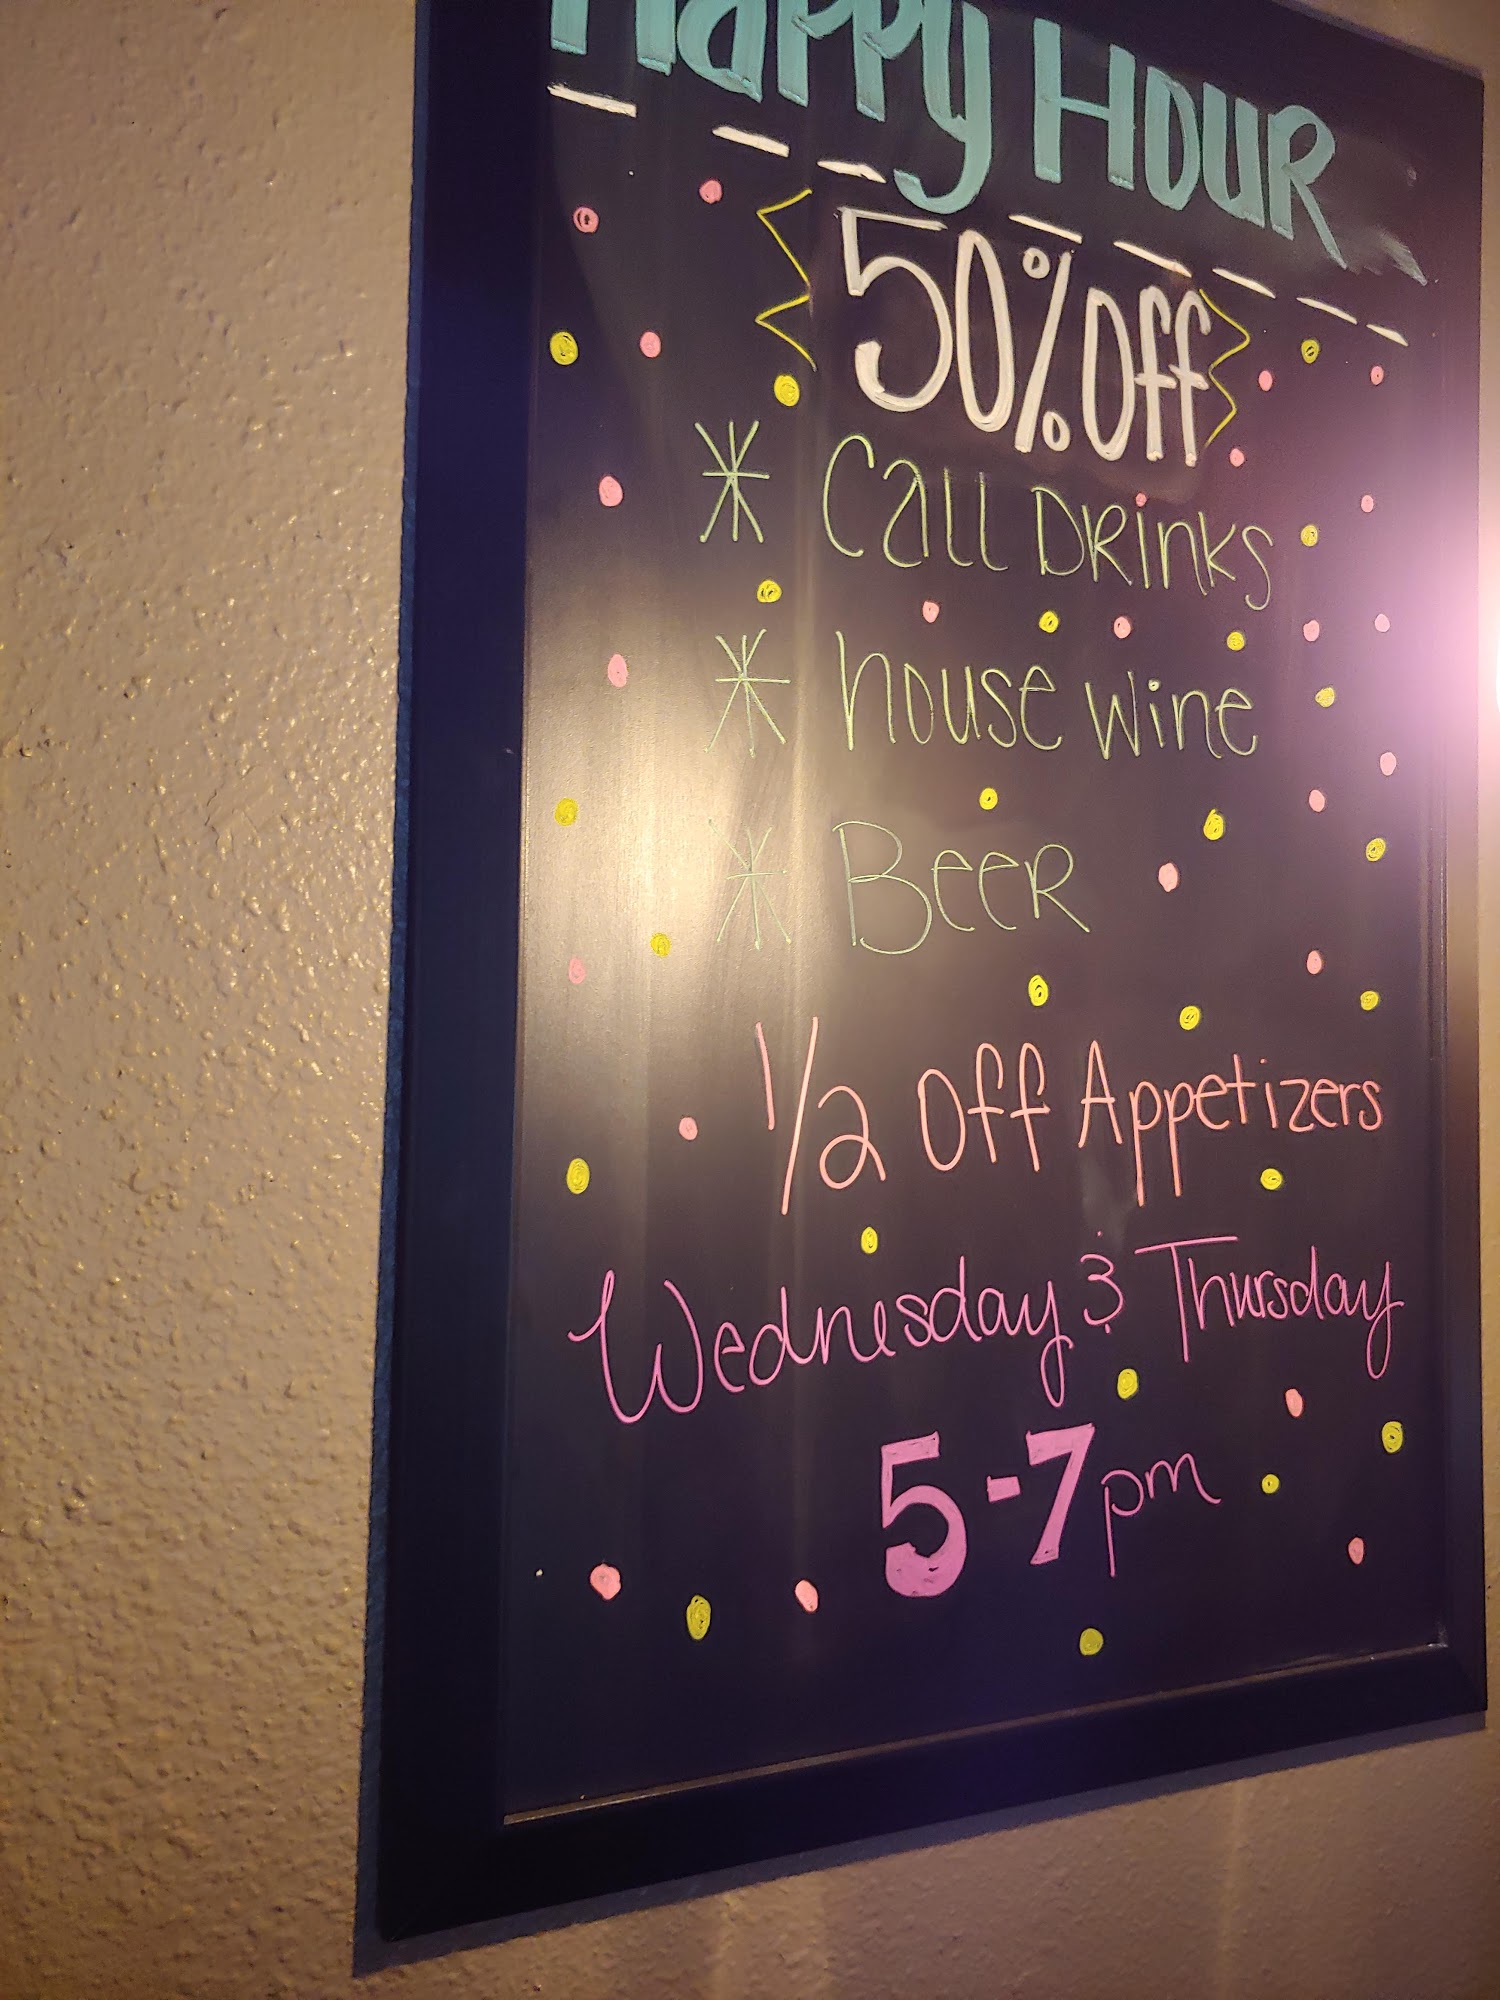 Happy Hour
50% Off
* Call Drinks
* House Wine
* Beer
1/2 Off Appetizers
Wednesday & Thursday
5-7pm